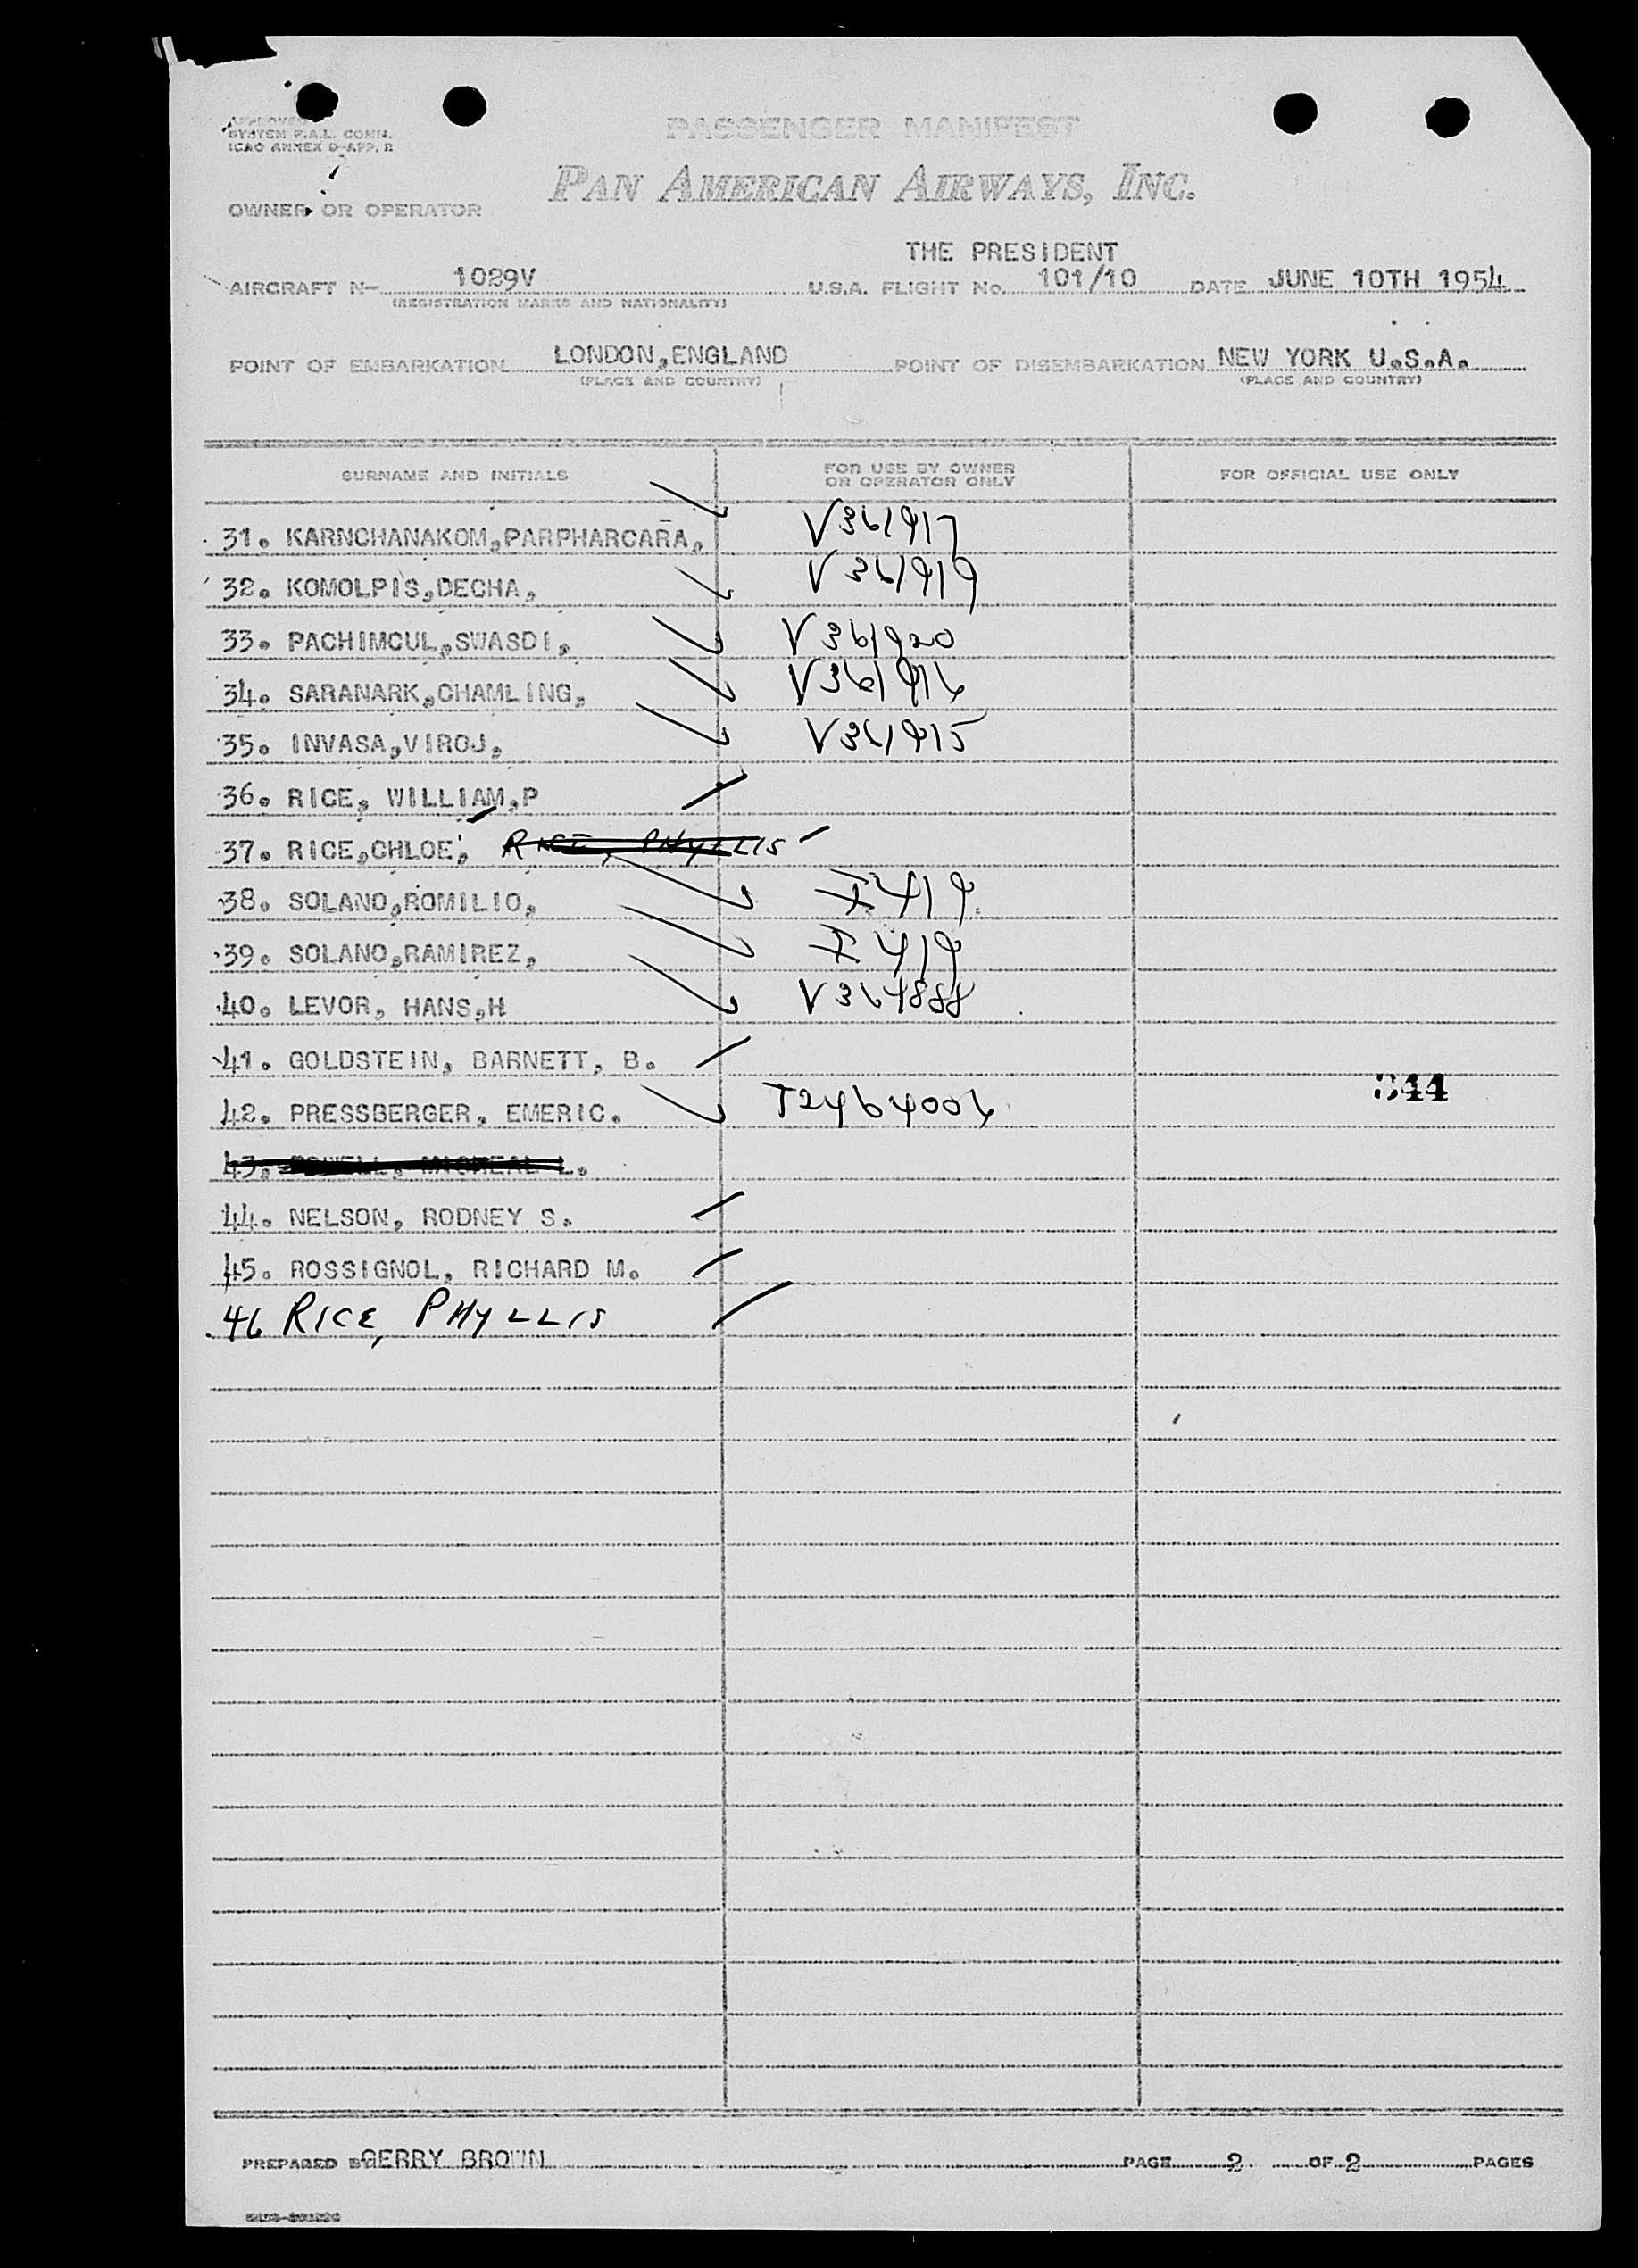 APPROVED
SYSTEM F.A.L. COMM.
ICAO ANNEX 9-APP. B
PASSENGER MANIFEST
PAN AMERICAN AIRWAYS, INC.
OWNER OR OPERATOR
THE PRESIDENT
AIRCRAFT N- 1029V U.S.A. FLIGHT No. 101/10 DATE JUNE 10TH 1954
(REGISTRATION MARKS AND NATIONALITY)
POINT OF EMBARKATION LONDON,ENGLAND POINT OF DISEMBARKATION NEW YORK U.S.A.
(PLACE AND COUNTRY) (PLACE AND COUNTRY)
SURNAME AND INITIALS FOR USE BY OWNER OR OPERATOR ONLY FOR OFFICIAL USE ONLY
31. KARNCHANAKOM,PARPHARCARA, V361917
32. KOMOLPIS,DECHA, V361919
33. PACHIMCUL,SWASDI, V361920
34. SARANARK,CHAMLING, V361916
35. INVASA,VIROJ, V361915
36. RICE, WILLIAM,P
37. RICE,CHLOE, RICE, PHYLLIS
38. SOLANO,ROMILIO, I 419
39. SOLANO,RAMIREZ, I 419
40. LEVOR, HANS,H V364888
41. GOLDSTEIN, BARNETT, B.
344
42. PRESSBERGER, EMERIC. T2464006
43. POWELL, MICHEAL L.
44. NELSON, RODNEY S.
45. ROSSIGNOL, RICHARD M.
46 RICE, PHYLLIS
PREPARED BY GERRY BROWN PAGE 2. OF 2 PAGES